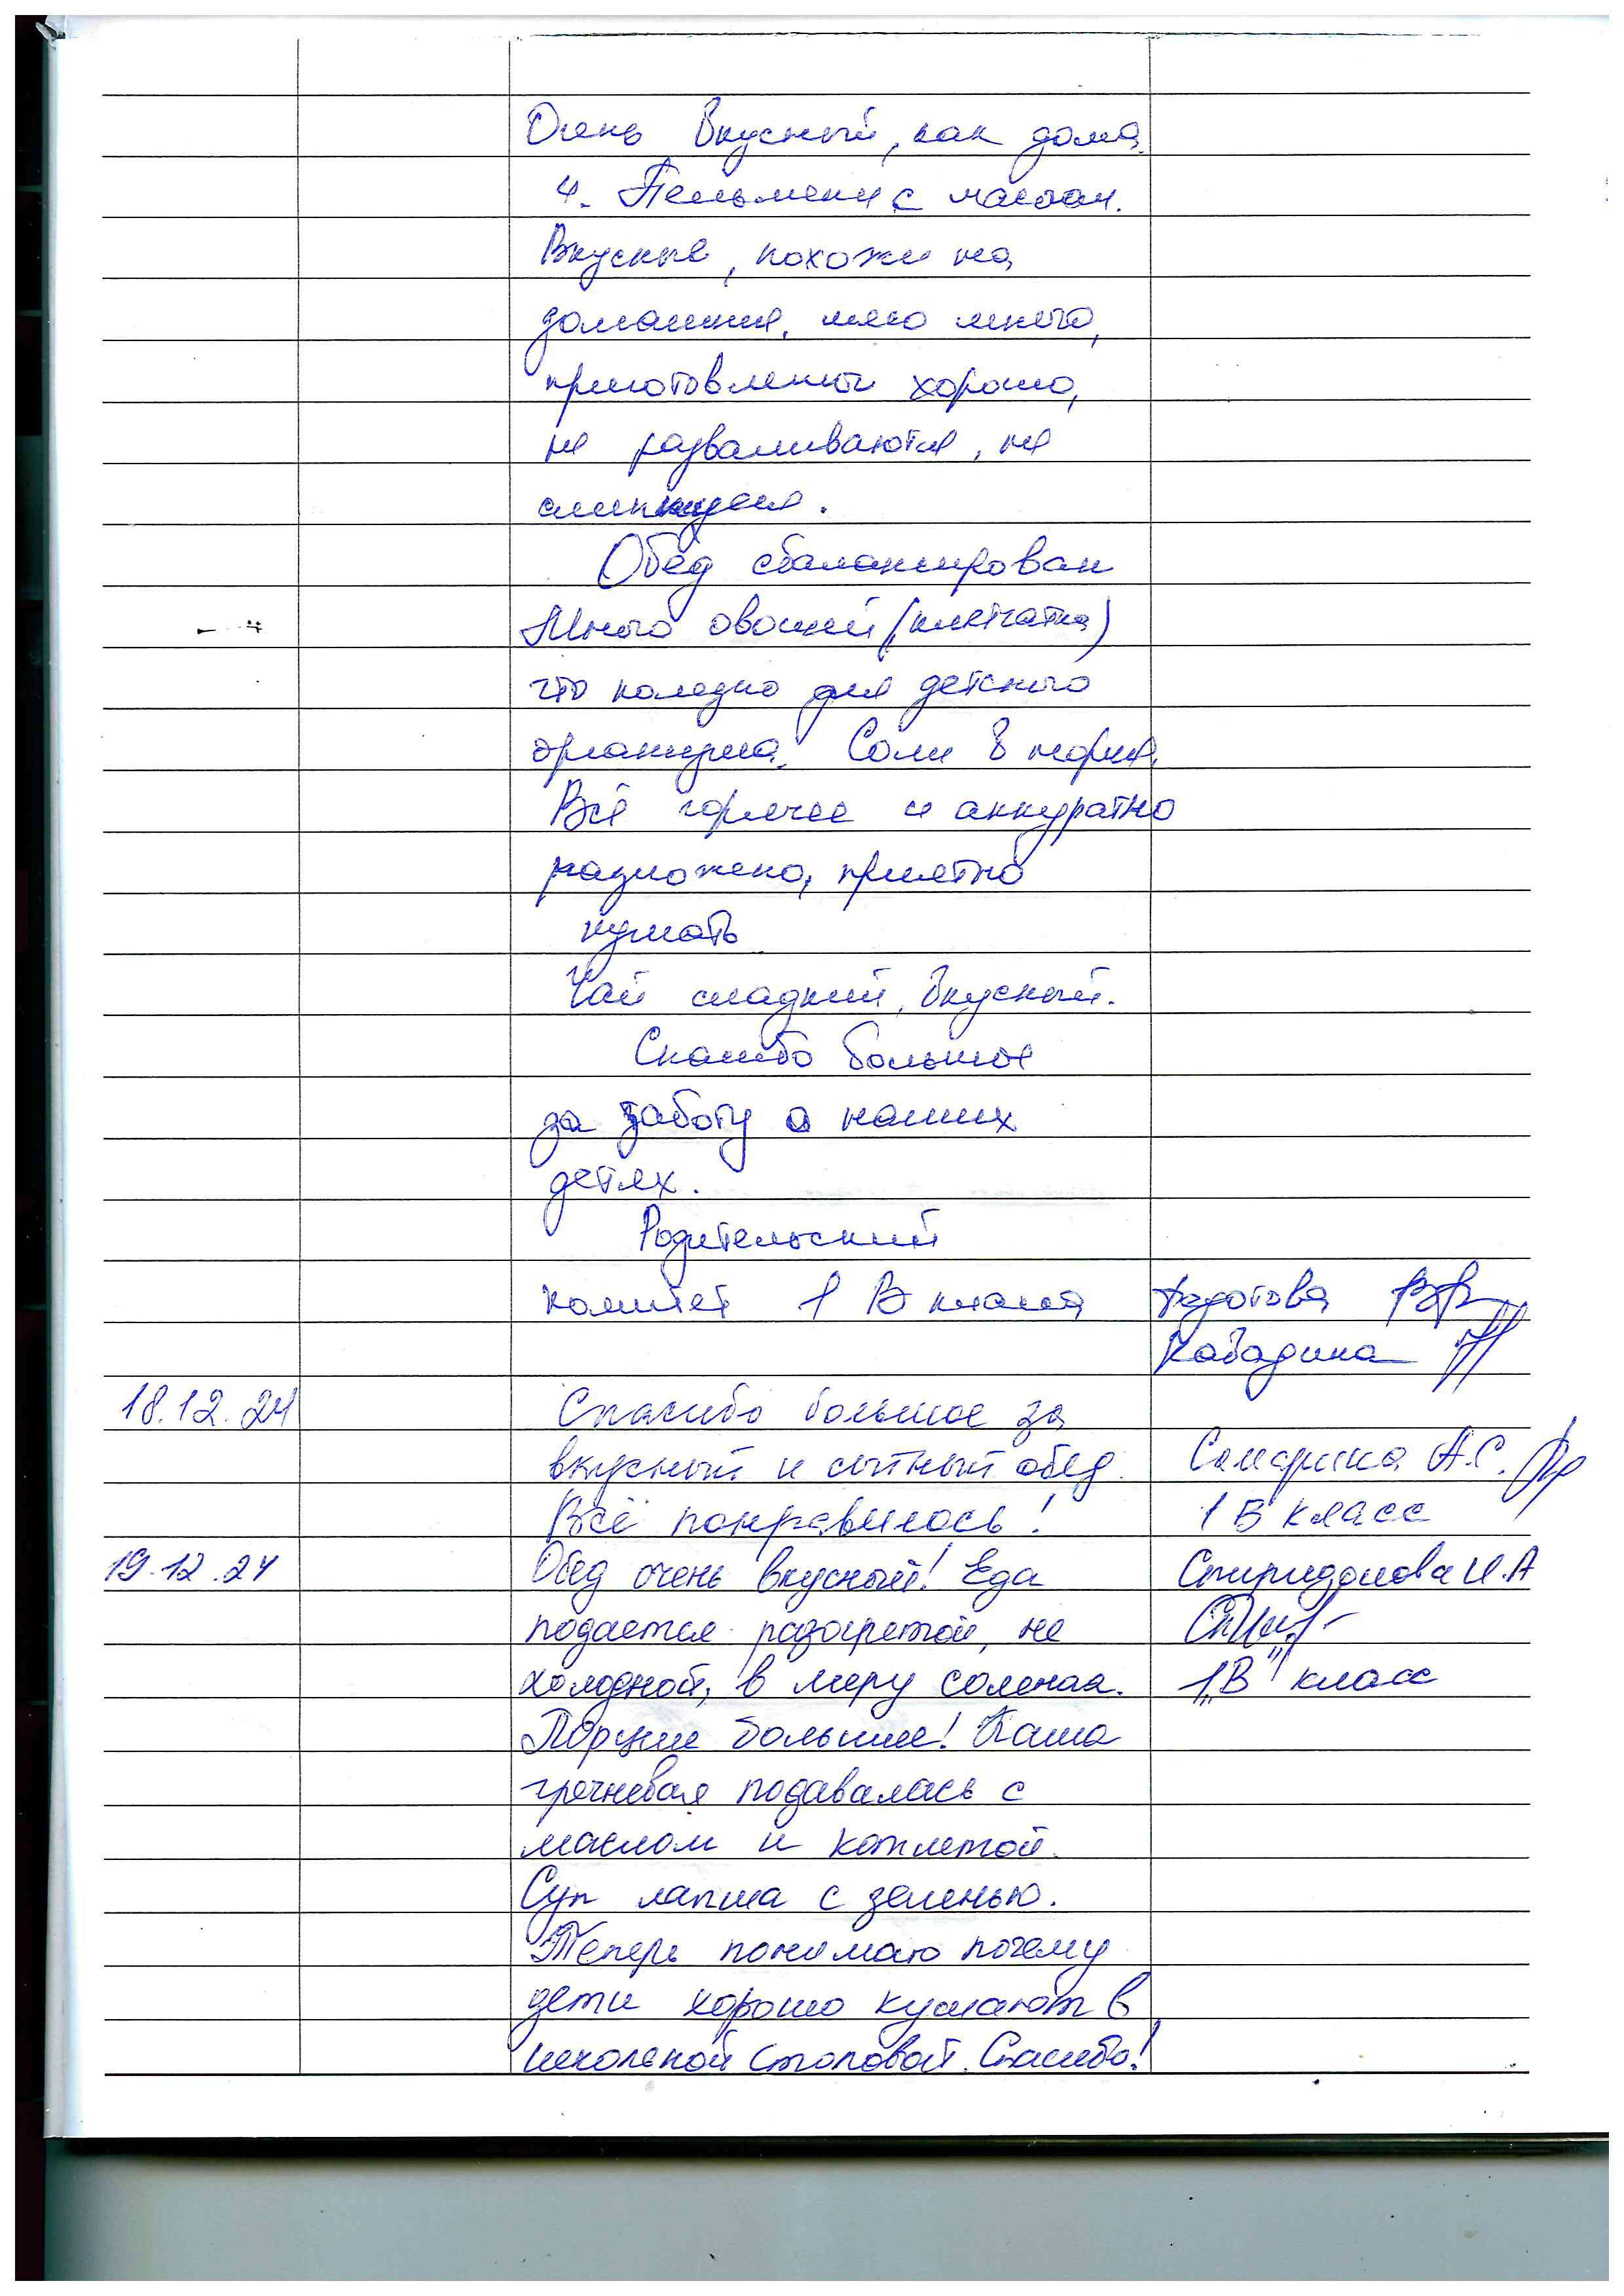 Очень вкусный, как дома.
4. Пельмени с маслом.
Вкусные, похожи на
домашние, мясо много,
приготовлены хорошо,
не разваливаются, не
Обед сбалансирован
Много овощей (клетчатка)
что полезно для детского
организма. Соли в норме.
Всё горячее и аккуратно
разложено, приятно
кушать
Чай сладкий, вкусный.
Спасибо большое
за заботу о наших
детях.
Родительский
комитет 1 В класса
Кабадина
18.12.24 Спасибо большое за
вкусный и сытный обед. Самарина А.С.
Всё понравилось! 1 В класс
19.12.24 Обед очень вкусный! Еда Спиридонова И.А
подается разогретой, не
холодной, в меру соленая. 1 „В" класс
Порции большие! Каша
гречневая подавалась с
маслом и котлетой.
Суп лапша с зеленью.
Теперь понимаю почему
дети хорошо кушают в
школьной столовой. Спасибо!